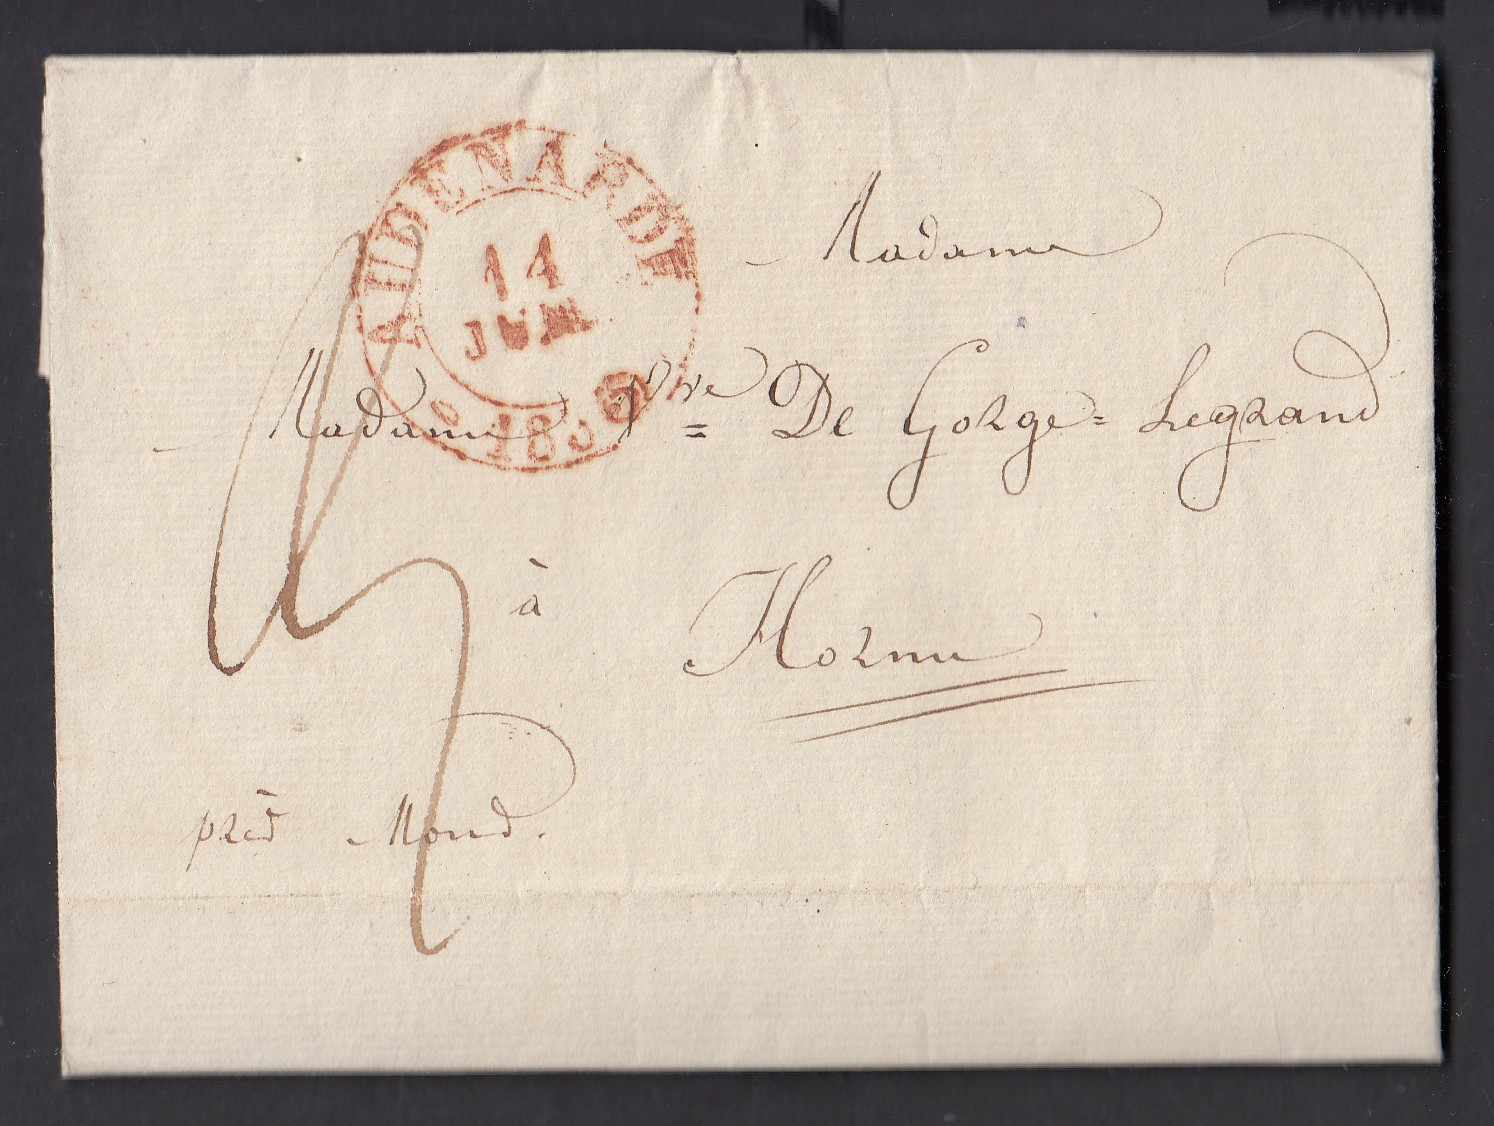 AUDENARDE
14
JUIL
Madame
Madame Vve De Gorge = Legrand
à Hornu
près Mons.